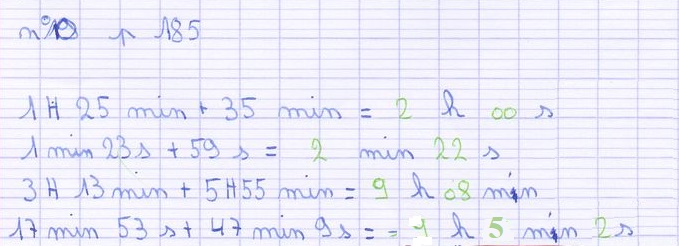 n°19 p 185
1H 25 min + 35 min = 2 h 00 s
1 min 23 s + 59 s = 2 min 22 s
3H 13 min + 5H55 min = 9 h 08 min
17 min 53 s + 47 min 9 s = = 1 h 5 min 2 s